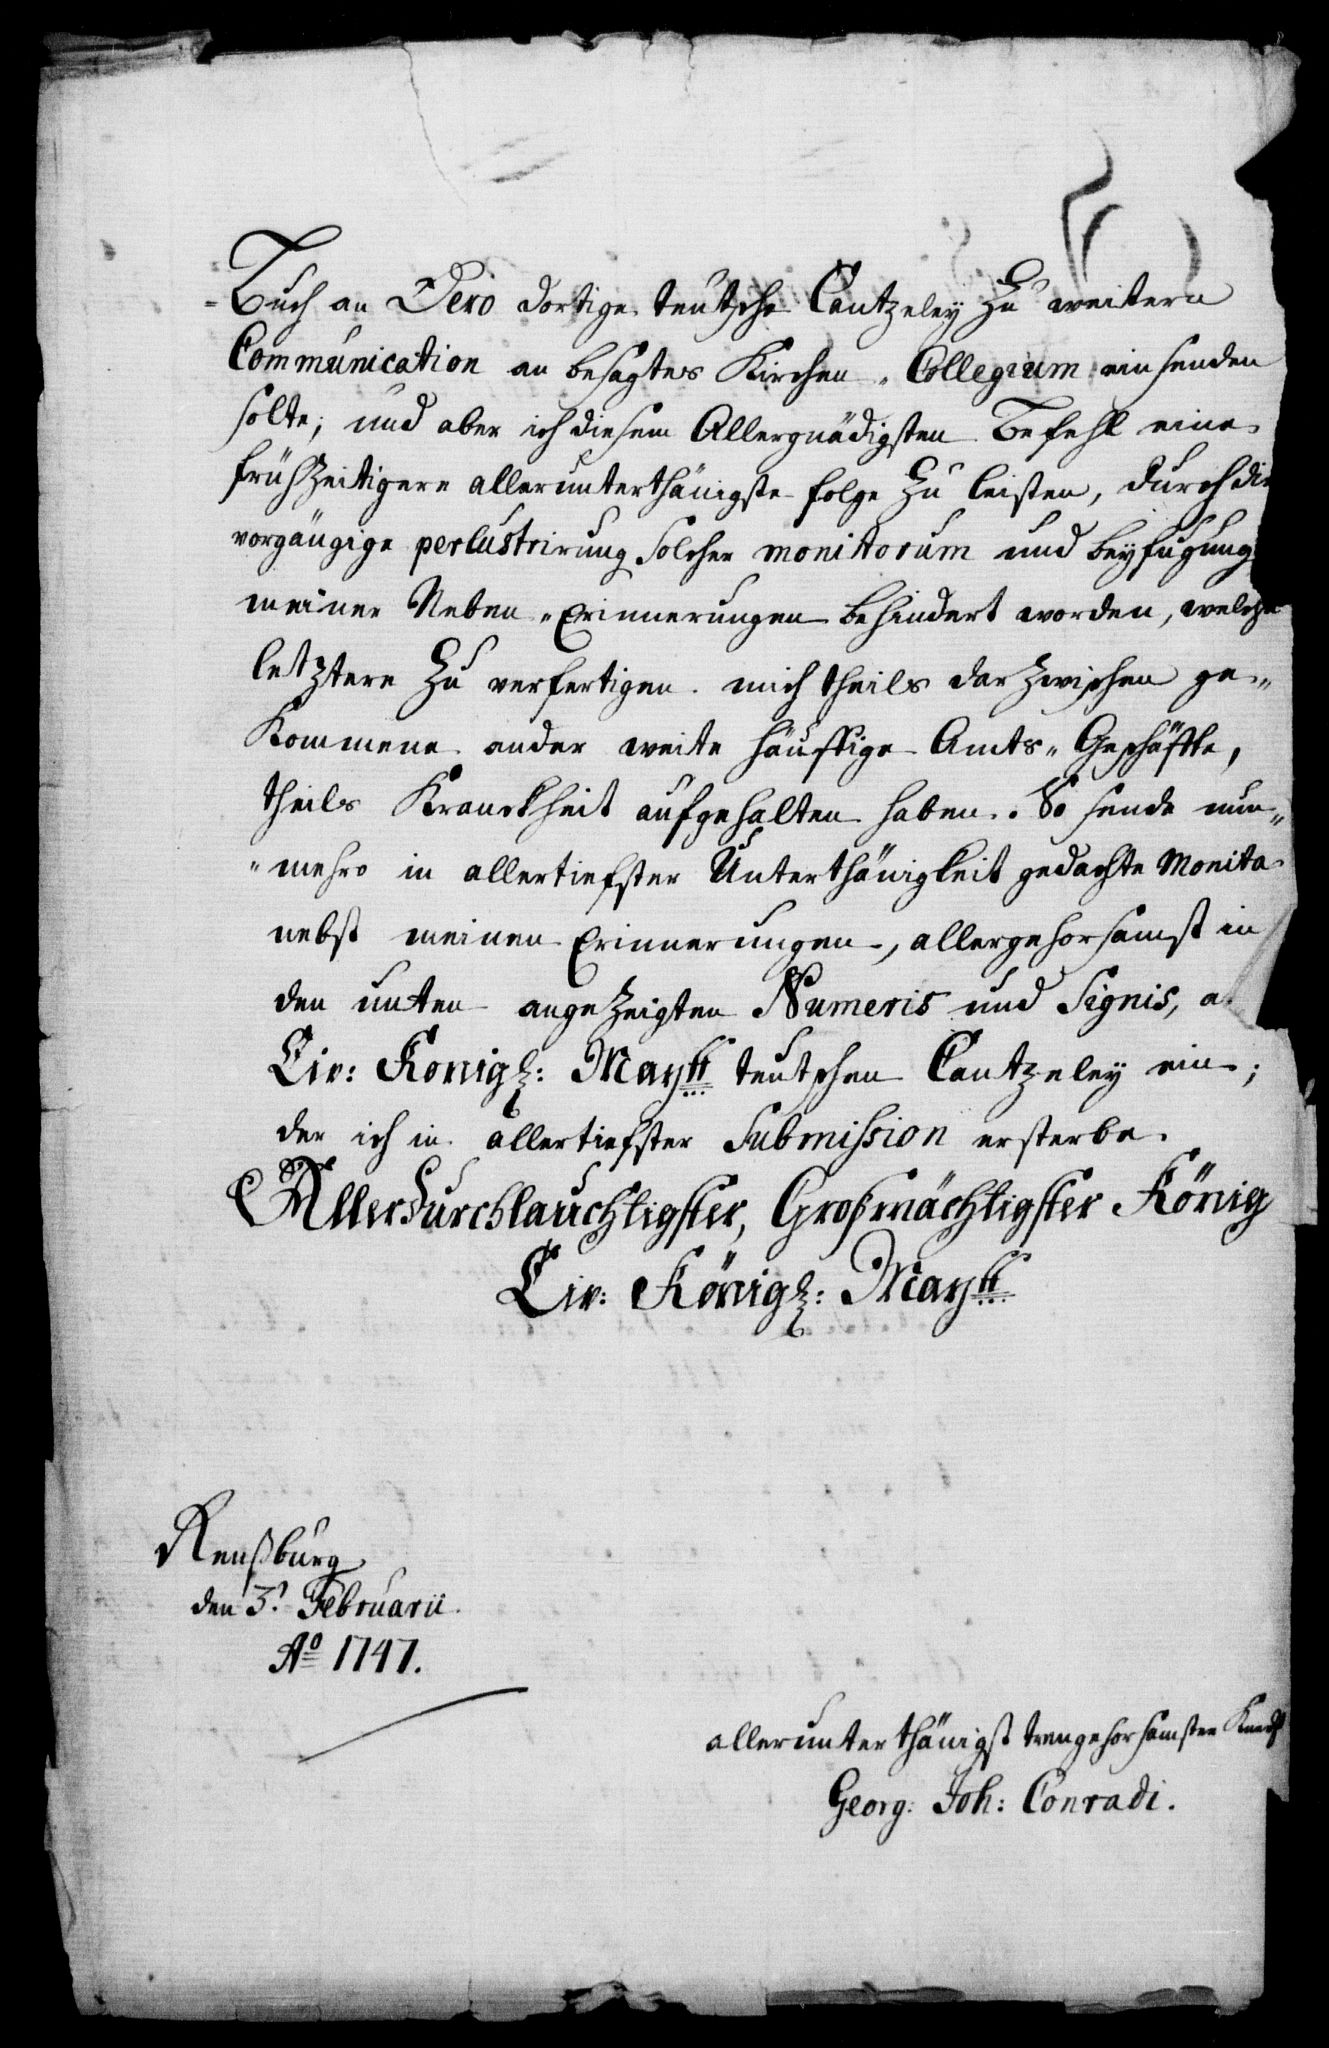 =Buch an Dero dortige teutsche Cantzeley zu weitern
Communication an besagtes Kirchen-Collegium einsenden
solte; und aber ich diesem Allergnädigsten Befehl eine
frühzeitigere allerunterthänigste folge zu leisten, durch die
vorgängige perlustrirung solcher monitorum und beyfugung
meiner Neben-Erinnerungen behindert worden, welche
letztere zu verfertigen mich theils darzwischen ge-
kommene anderweite häuffige Amts-Geschäffte,
theils Kranckheit aufgehalten haben. So sende nun-
-mehro in allertiefster Unterthänigkeit gedachte Monita
nebst meinen Erinnerungen, allergehorsamst in
den unten angezeigten Numeris und Signis, a
Ew: Königl: Maytt teutschen Cantzeley ein;
der ich in allertiefster Submission ersterbe.
Allerdurchlauchtigster, Großmächtigster König
Ew: Königl: Maytt
Renßburg
den 3t Februarii
Ao 1747.
allerunterthänigst treugehorsamster Knecht
Georg: Joh: Conradi.